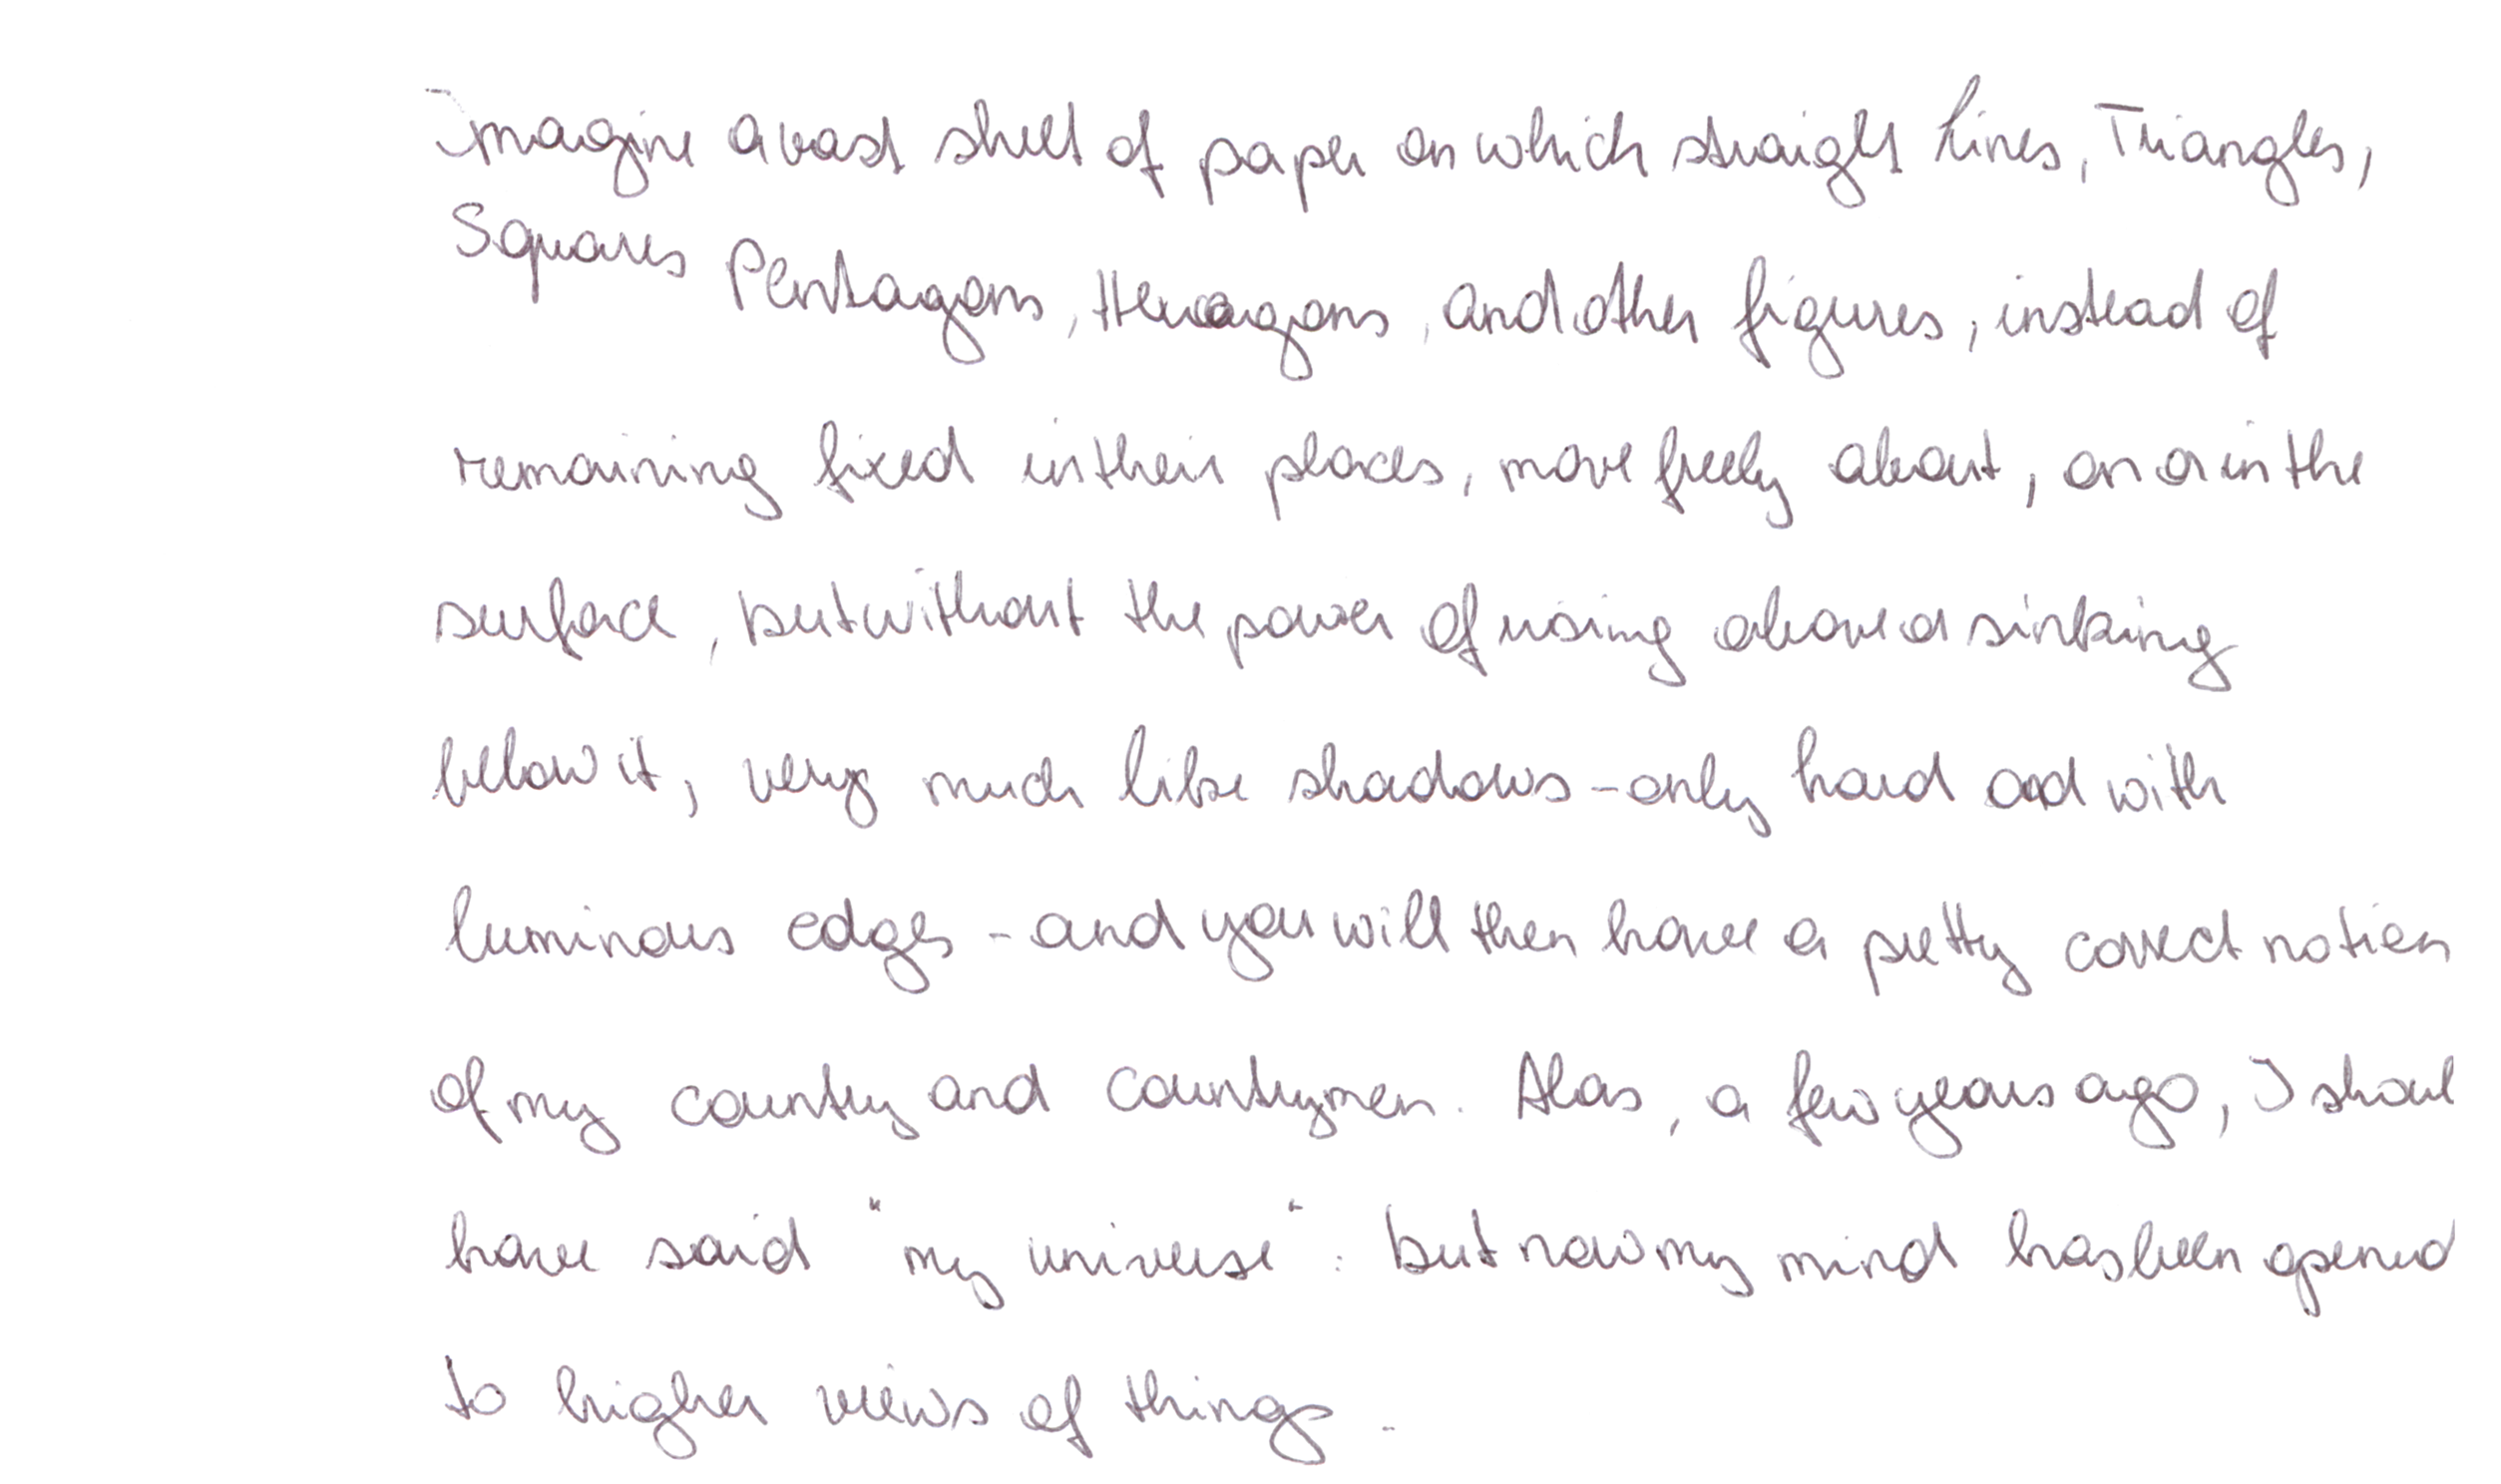 Imagine a vast sheet of paper on which straight Lines, Triangles,
Squares Pentagons, Hexagons, and other figures, instead of
remaining fixed in their places, move freely about, on or in the
surface, but without the power of rising above or sinking
below it, very much like shadows - only hard and with
luminous edges - and you will then have a pretty correct notion
of my country and countrymen. Alas, a few years ago, I shoul
have said "my universe": but now my mind has been opened
to higher views of things.